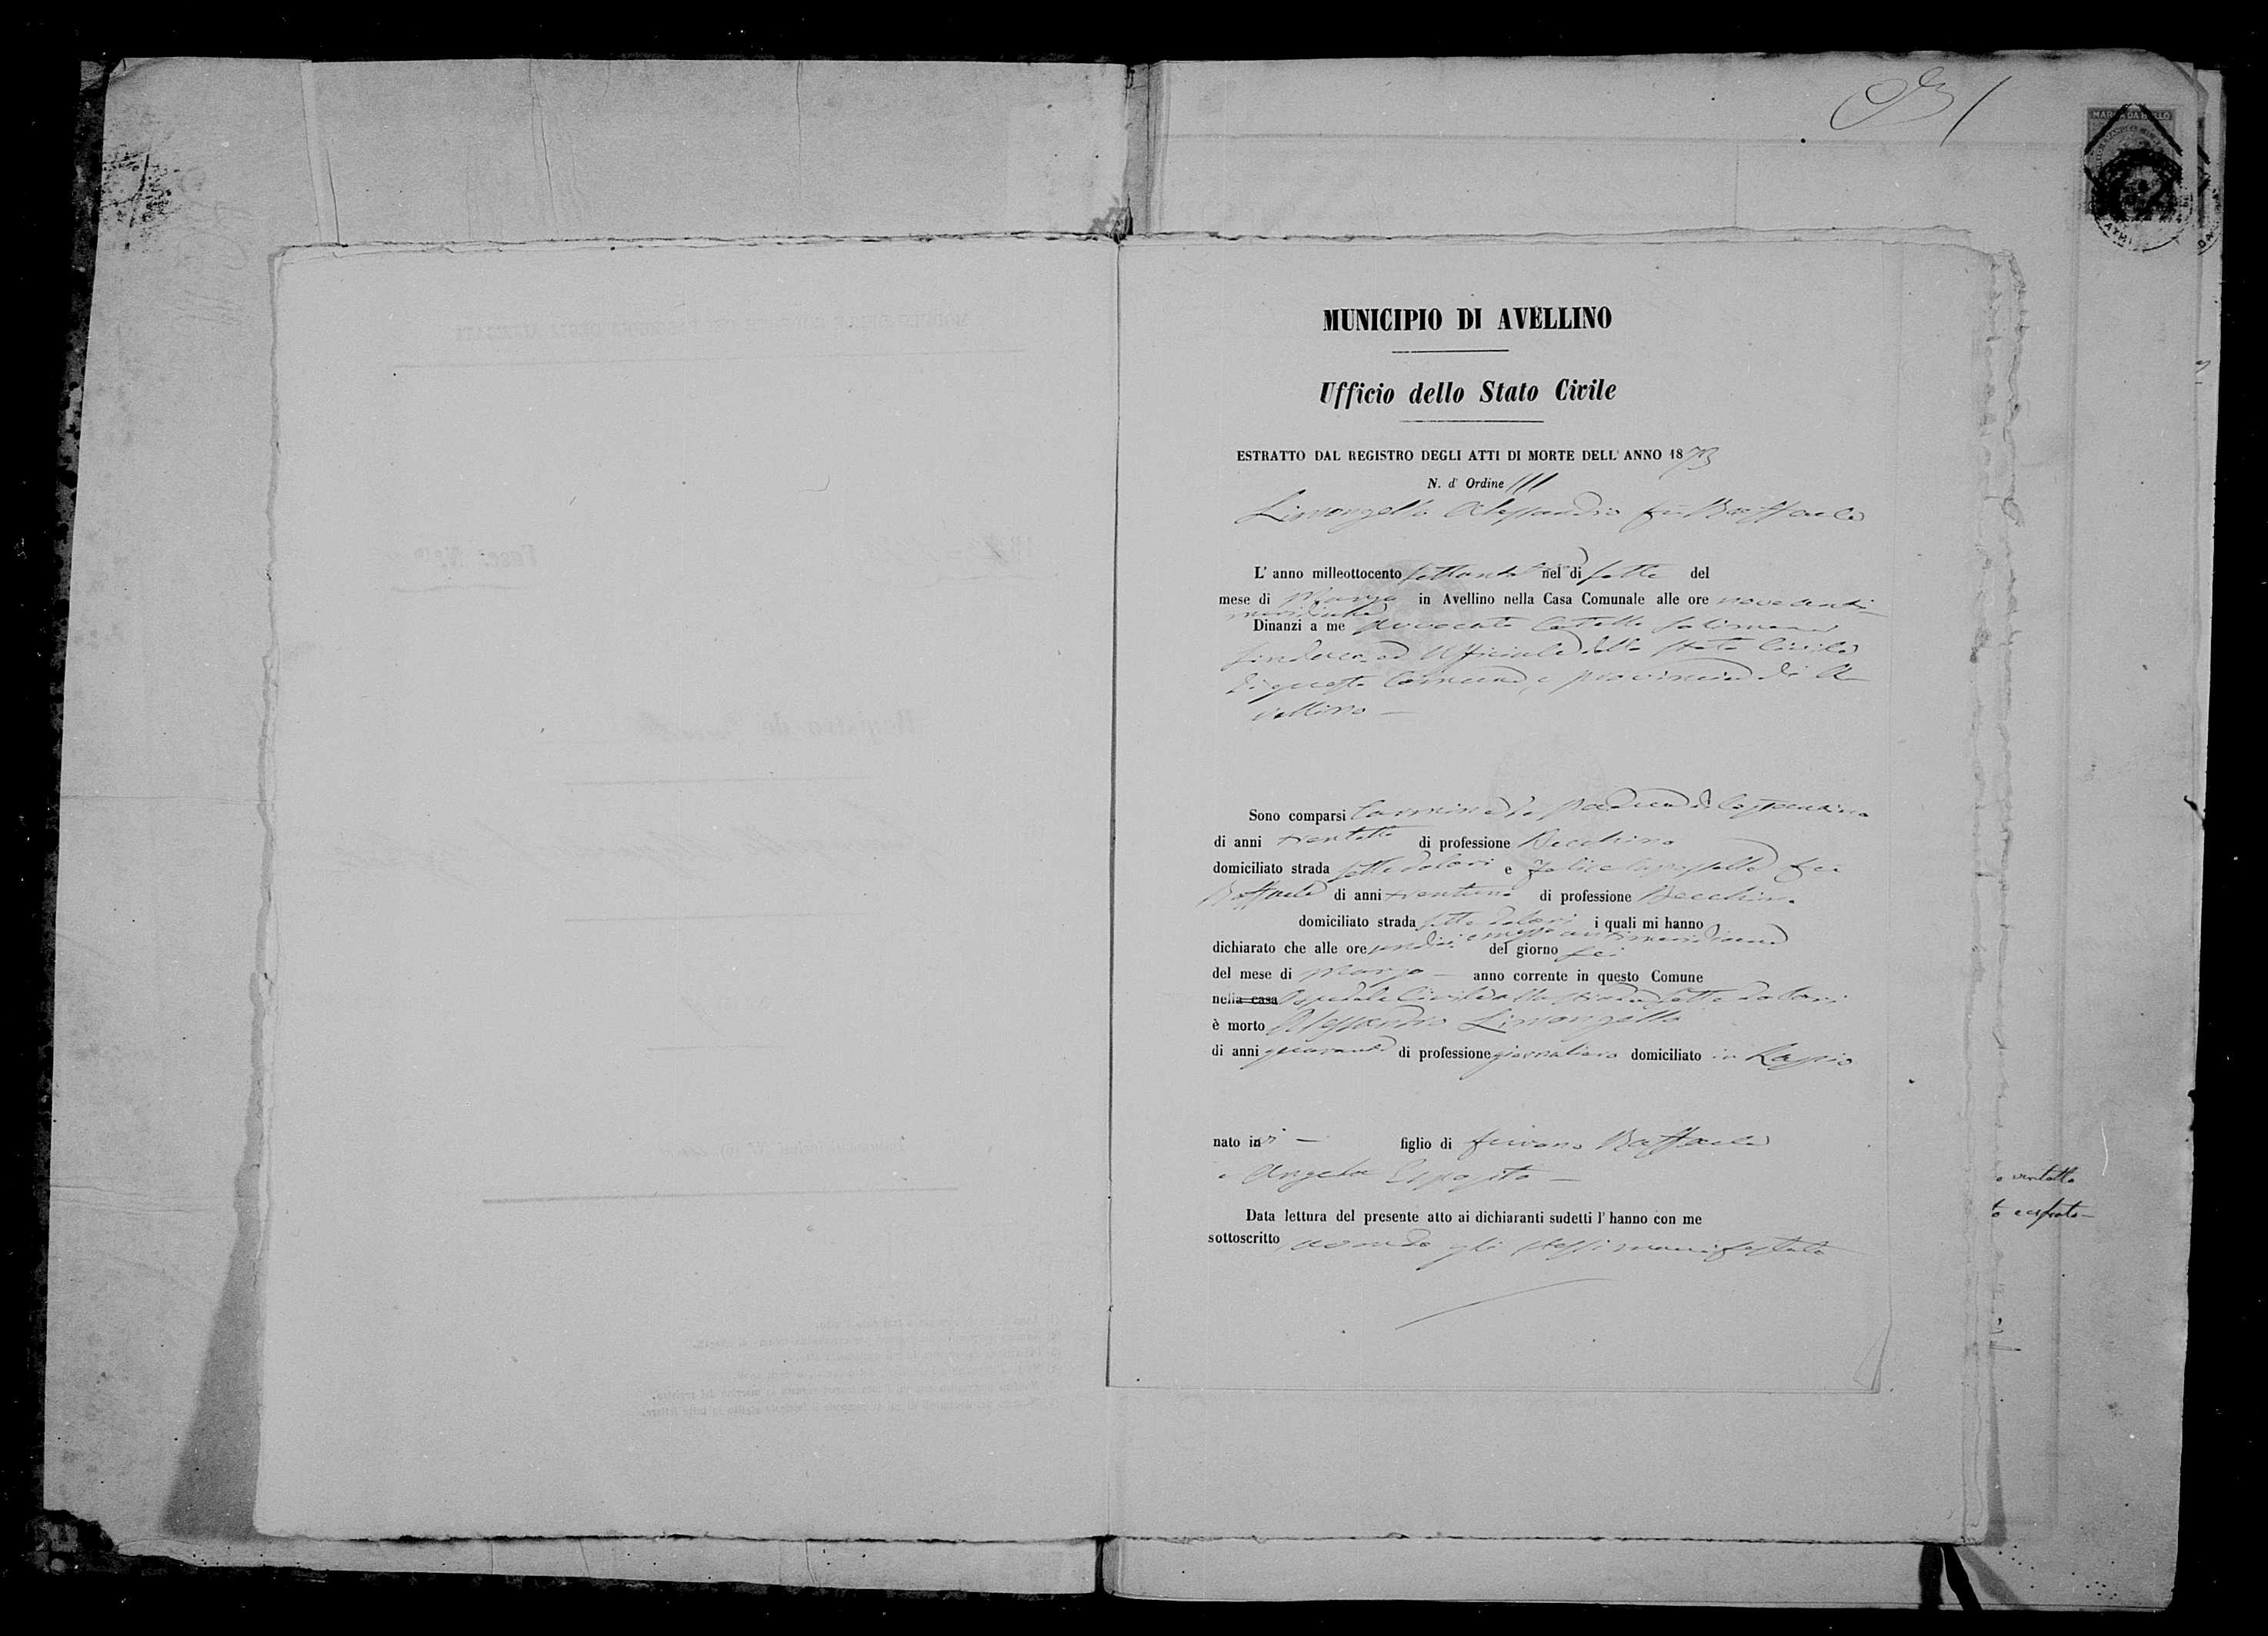 MARCA DA BOLLO
MUNICIPIO DI AVELLINO
Ufficio dello Stato Civile
ESTRATTO DAL REGISTRO DEGLI ATTI DI MORTE DELL' ANNO 1873
N. d' Ordine 111
Limongello Alessandro fu Raffaele
L' anno milleottocento nel dì sette del
mese di Marzo in Avellino nella Casa Comunale alle ore nove anti-
meridiane
Dinanzi a me Avvocato Catello Solimene
Sindaco ed Ufficiale dello Stato Civile
di questo Comune, e provincia di A
vellino —
Sono comparsi Carmine de
di anni di professione Becchino
domiciliato strada sette dolori e Felice fu
Raffaele di anni trentuno di professione Becchino
domiciliato strada sette dolori i quali mi hanno
dichiarato che alle ore undici e mezzo antimeridiane del giorno sei
del mese di Marzo — anno corrente in questo Comune
nella casa Ospedale Civile alla strada Sette dolori
è morto Alessandro Limongello
di anni quaranta di professione giornaliero domiciliato in Lapio
nato ivi — figlio di furono Raffaele
e Angela Esposito —
Data lettura del presente atto ai dichiaranti sudetti l' hanno con me
sottoscritto avendo gli stessi manifestato